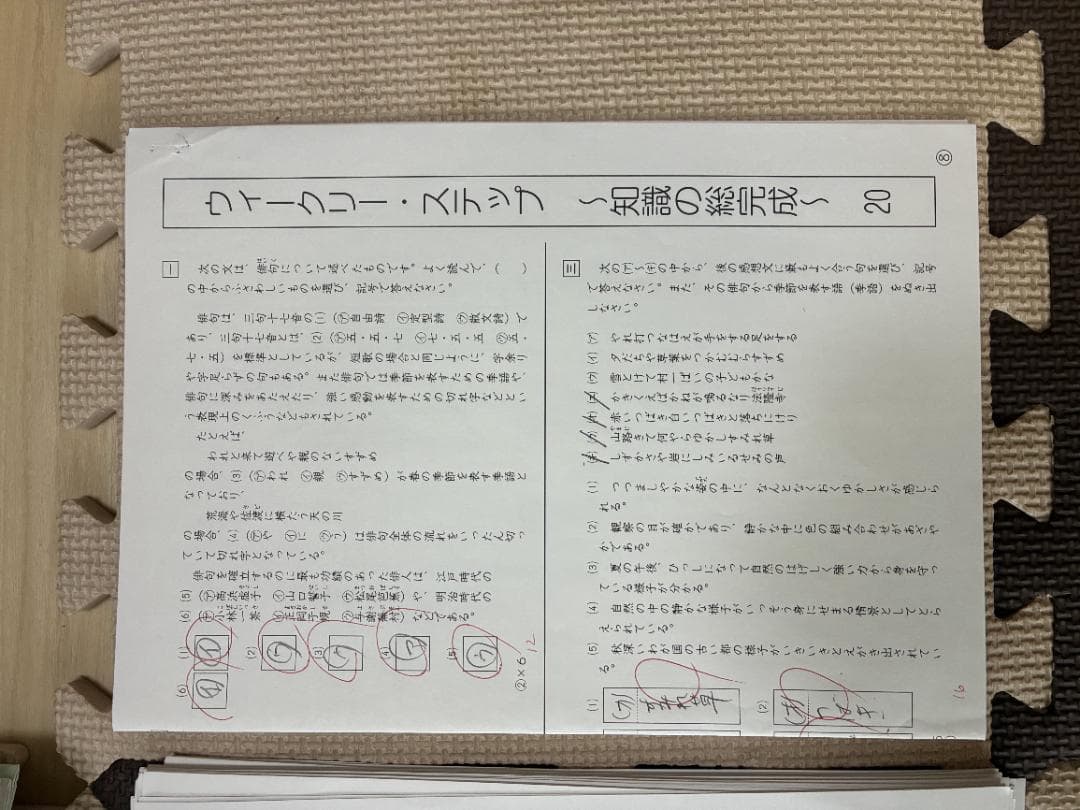 ウィークリー・ステップ ～知識の総完成～ 20
⑧
一
次の文は、俳句について述べたものです。よく読んで、（ ）
の中からふさわしいものを選び、記号で答えなさい。
俳句は、三句十七音の(1)（㋐自由詩 ㋑定型詩 ㋒散文詩）で
あり、三句十七音とは、(2)（㋐五・五・七 ㋑七・五・五 ㋒五・
七・五）を標準としているが、短歌の場合と同じように、字余り
や字足らずの句もある。また俳句では季節を表すための季語や、
俳句に深みをあたえたり、強い感動を表すための切れ字などとい
う表現上のくふうなどもされている。
たとえば、
われと来て遊べや親のないすずめ
の場合、(3)（㋐われ ㋑親 ㋒すずめ）が春の季節を表す季語と
なっており、
荒海や佐渡に横たう天の川
の場合、(4)（㋐や ㋑に ㋒う）は俳句全体の流れをいったん切っ
ていて切れ字となっている。
俳句を確立するのに最も功績のあった俳人は、江戸時代の
(5)（㋐高浜虚子 ㋑山口誓子 ㋒松尾芭蕉）や、明治時代の
(6)（㋐小林一茶 ㋑正岡子規 ㋒与謝蕪村）などである。
(1) イ
(2) ウ
(3) ウ
(4)
(5) ウ
(6) イ
②×6
12
三
次の㋐～㋖の中から、後の感想文に最もよく合う句を選び、記号
で答えなさい。また、その俳句から季節を表す語（季語）をぬき出
しなさい。
㋐ やれ打つなはえが手をする足をする
㋑ 夕だちや草葉をつかむむらすずめ
㋒ 雪とけて村一ぱいの子どもかな
かきくえばかねが鳴るなり法隆寺
赤いつばき白いつばきと落ちにけり
山路きて何やらゆかしすみれ草
しずかさや岩にしみいるせみの声
(1) つつましやかな姿の中に、なんとなくおくゆかしさが感じら
れる。
(2) 観察の目が確かであり、静かな中に色の組み合わせがあざや
かである。
(3) 夏の午後、ひっしになって自然のはげしく強い力から身を守っ
ている様子が分かる。
(4) 自然の中の静かな様子がいっそう身にせまる情景としてとら
えられている。
(5) 秋深いわが国の古い都の様子がいきいきとえがき出されてい
る。
(1) カ すみれ草
(2) オ つばき
16